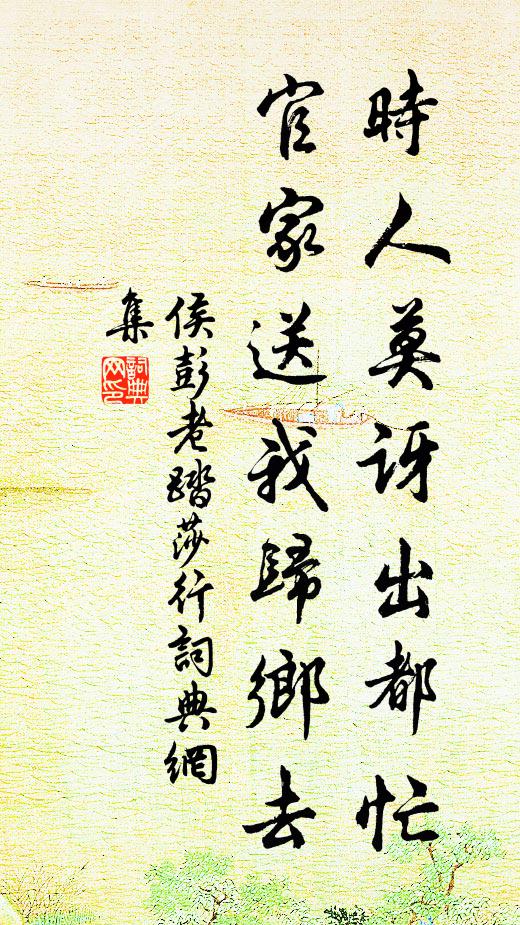 時人莫訝出都忙
官家送我歸鄉去
侯彭老踏莎行詞典網
集
詞典
网印